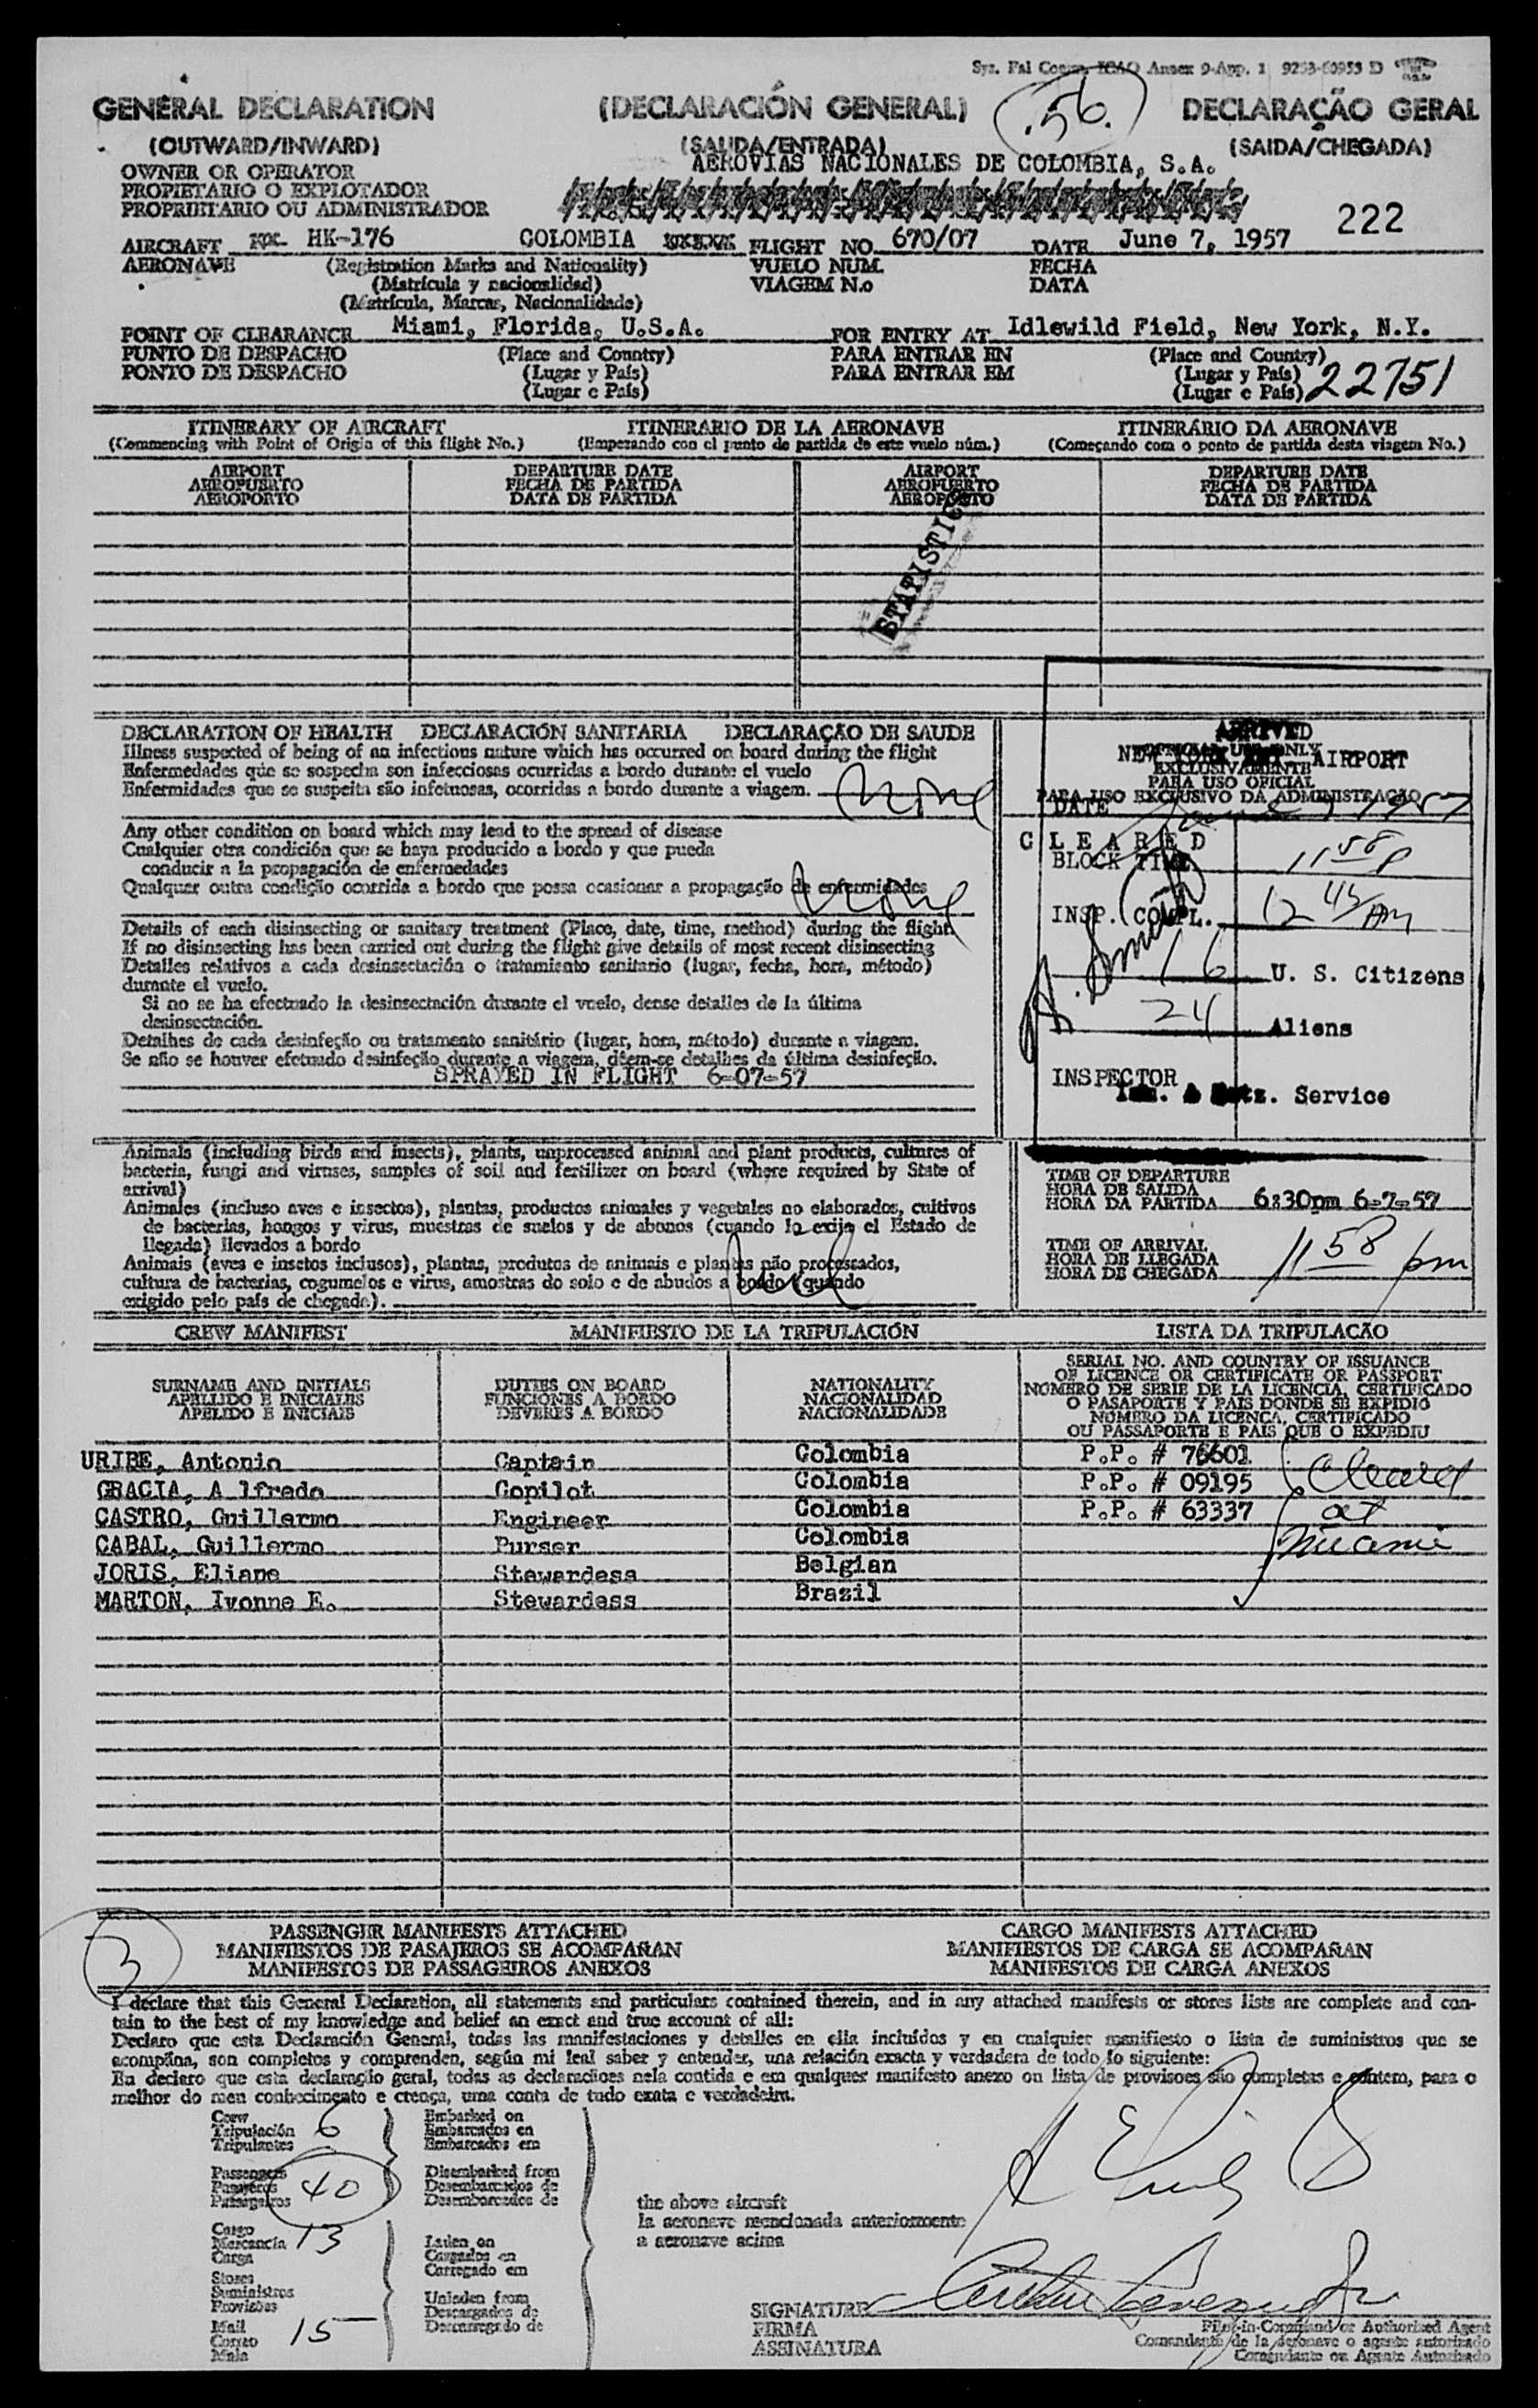 Sys. Fal Coorn. ICAO Annex 9-App. 1 9253-60953 D
GENERAL DECLARATION (DECLARACIÓN GENERAL) .56. DECLARAÇÃO GERAL
(OUTWARD/INWARD) (SALIDA/ENTRADA) (SAIDA/CHEGADA)
OWNER OR OPERATOR AEROVIAS NACIONALES DE COLOMBIA, S.A.
PROPIETARIO O EXPLOTADOR
PROPRIETARIO OU ADMINISTRADOR
222
AIRCRAFT HK-176 COLOMBIA FLIGHT NO. 670/07 DATE June 7, 1957
AERONAVE (Registration Marks and Nationality) VUELO NUM. FECHA
(Matrícula y nacionalidad) VIAGEM N.o DATA
(Matrícula, Marcas, Nacionalidade)
POINT OF CLEARANCE Miami, Florida, U.S.A. FOR ENTRY AT Idlewild Field, New York, N.Y.
PUNTO DE DESPACHO (Place and Country) PARA ENTRAR EN (Place and Country)
PONTO DE DESPACHO (Lugar y País) PARA ENTRAR EM (Lugar y País) 22751
(Lugar e País) (Lugar e País)
ITINERARY OF AIRCRAFT ITINERARIO DE LA AERONAVE ITINERÁRIO DA AERONAVE
(Commencing with Point of Origin of this flight No.) (Empezando con el punto de partida de este vuelo núm.) (Começando com o ponto de partida desta viagem No.)
AIRPORT DEPARTURE DATE AIRPORT DEPARTURE DATE
AEROPUERTO FECHA DE PARTIDA AEROPUERTO FECHA DE PARTIDA
AEROPORTO DATA DE PARTIDA AEROPORTO DATA DE PARTIDA
STATISTICS
DECLARATION OF HEALTH DECLARACIÓN SANITARIA DECLARAÇÃO DE SAUDE
Illness suspected of being of an infectious nature which has occurred on board during the flight
Enfermedades que se sospecha son infecciosas ocurridas a bordo durante el vuelo
Enfermidades que se suspeita são infetuosas, ocorridas a bordo durante a viagem. None
Any other condition on board which may lead to the spread of disease
Cualquier otra condición que se haya producido a bordo y que pueda
conducir a la propagación de enfermedades
Qualquer outra condição ocorrida a bordo que possa ocasionar a propagação de enfermidades None
Details of each disinsecting or sanitary treatment (Place, date, time, method) during the flight.
If no disinsecting has been carried out during the flight give details of most recent disinsecting
Detalles relativos a cada desinsectación o tratamiento sanitario (lugar, fecha, hora, método)
durante el vuelo.
Si no se ha efectuado la desinsectación durante el vuelo, dense detalles de la última
desinsectación.
Detalhes de cada desinfeção ou tratamento sanitário (lugar, hora, método) durante a viagem.
Se não se houver efetuado desinfeção durante a viagem, dêem-se detalhes da última desinfeção.
SPRAYED IN FLIGHT 6-07-57
ARRIVED
NEW YORK INT. AIRPORT
OFFICIAL USE ONLY
EXCLUSIVAMENTE
PARA USO OFICIAL
PARA USO EXCLUSIVO DA ADMINISTRAÇÃO
DATE June 7 1957
CLEARED
BLOCK TIME 11 58 P
INSP. COMPL. 12 45 AM
16 U. S. Citizens
24 Aliens
INSPECTOR
Imm. & Natz. Service
Animals (including birds and insects), plants, unprocessed animal and plant products, cultures of
bacteria, fungi and viruses, samples of soil and fertilizer on board (where required by State of
arrival)
Animales (incluso aves e insectos), plantas, productos animales y vegetales no elaborados, cultivos
de bacterias, hongos y virus, muestras de suelos y de abonos (cuando lo exija el Estado de
llegada) llevados a bordo
Animais (aves e insetos inclusos), plantas, produtos de animais e plantas não processados,
cultura de bacterias, cogumelos e virus, amostras do solo e de abudos a bordo (quando
exigido pelo país de chegada).
TIME OF DEPARTURE
HORA DE SALIDA
HORA DA PARTIDA 6:30pm 6-7-57
TIME OF ARRIVAL
HORA DE LLEGADA
HORA DE CHEGADA 11 58 pm
CREW MANIFEST MANIFIESTO DE LA TRIPULACIÓN LISTA DA TRIPULACÃO
SURNAME AND INITIALS DUTIES ON BOARD NATIONALITY SERIAL NO. AND COUNTRY OF ISSUANCE
APELLIDO E INICIALES FUNCIONES A BORDO NACIONALIDAD OF LICENCE OR CERTIFICATE OR PASSPORT
APELIDO E INICIAIS DEVERES A BORDO NACIONALIDADE NÚMERO DE SERIE DE LA LICENCIA, CERTIFICADO
O PASAPORTE Y PAIS DONDE SE EXPIDIO
NÚMERO DA LICENCA, CERTIFICADO
OU PASSAPORTE E PAIS QUE O EXPEDIU
URIBE, Antonio Captain Colombia P.P. # 76601 Cleared
GRACIA, A lfredo Copilot Colombia P.P. # 09195 at
CASTRO, Guillermo Engineer Colombia P.P. # 63337 Miami
CABAL, Guillermo Purser Colombia
JORIS, Eliane Stewardess Belgian
MARTON, Ivonne E. Stewardess Brazil
3
PASSENGER MANIFESTS ATTACHED CARGO MANIFESTS ATTACHED
MANIFIESTOS DE PASAJEROS SE ACOMPAÑAN MANIFIESTOS DE CARGA SE ACOMPAÑAN
MANIFESTOS DE PASSAGEIROS ANEXOS MANIFESTOS DE CARGA ANEXOS
I declare that this General Declaration, all statements and particulars contained therein, and in any attached manifests or stores lists are complete and con-
tain to the best of my knowledge and belief an exact and true account of all:
Declaro que esta Declaración General, todas las manifestaciones y detalles en ella incluidos y en cualquier manifiesto o lista de suministros que se
acompaña, son completos y comprenden, según mi leal saber y entender, una relación exacta y verdadera de todo lo siguiente:
Eu declaro que esta declaração geral, todas as declaracãoes nela contida e em qualquer manifesto anexo ou lista de provisoes são completas e contem, para o
melhor do meu conhecimento e crença, uma conta de tudo exata e verdadeira.
Crew Embarked on
Tripulación 6 Embarcados en
Tripulantes Embarcados em
Passengers Disembarked from
Pasajeros 40 Desembarcados de
Passageiros Desembarcados de
the above aircraft
la aeronave mencionada anteriormente
a aeronave acima
Cargo Laden on
Mercancía 13 Cargados en
Carga Carregado em
Stores
Suministros
Provisões
Unladen from
Descargados de
Descarregado de
Mail
Correo 15
Mala
SIGNATURE
FIRMA
ASSINATURA
Pilot-in-Command or Authorized Agent
Comandante de la aeronave o agente autorizado
Comandante ou Agente Autorizado